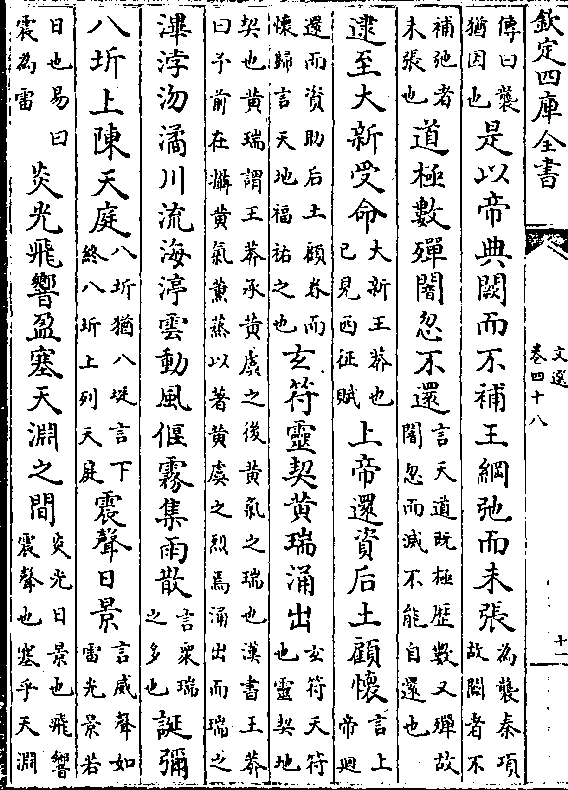 欽定四庫全書
文選
卷四十八
十一
傳曰襲猶因也是以帝典闕而不補王綱弛而未張為襲秦項故闕者不
補弛者未張也道極數殫闇忽不還言天道既極歷數又殫故闇忽而滅不能自還也
逮至大新受命大新王莽也已見西征賦上帝還資后土顧懷言上帝迴
還而資助后土顧眷而懷歸言天地福祐之也玄符靈契黄瑞涌出玄符天符也靈契地
契也黄瑞謂王莽承黄虞之後黄氣之瑞也漢書王莽曰予前在攝黄氣薰蒸以著黄虞之烈焉涌出而瑞之
滭浡沕潏川流海渟雲動風偃霧集雨散言衆瑞之多也誕彌
八圻上陳天庭八圻猶八埏言下終八圻上列天庭震聲日景言威聲如雷光景若
日也易曰震為雷炎光飛響盈塞天淵之間炎光日景也飛響震聲也塞乎天淵